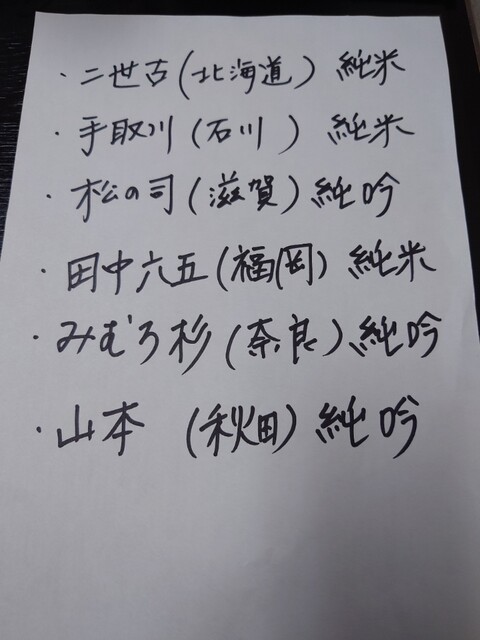 ・二世古(北海道) 純米
・手取川(石川 ) 純米
・松の司(滋賀)純吟
・田中六五(福岡) 純米
・みむろ杉(奈良)純吟
・山本 (秋田)純吟